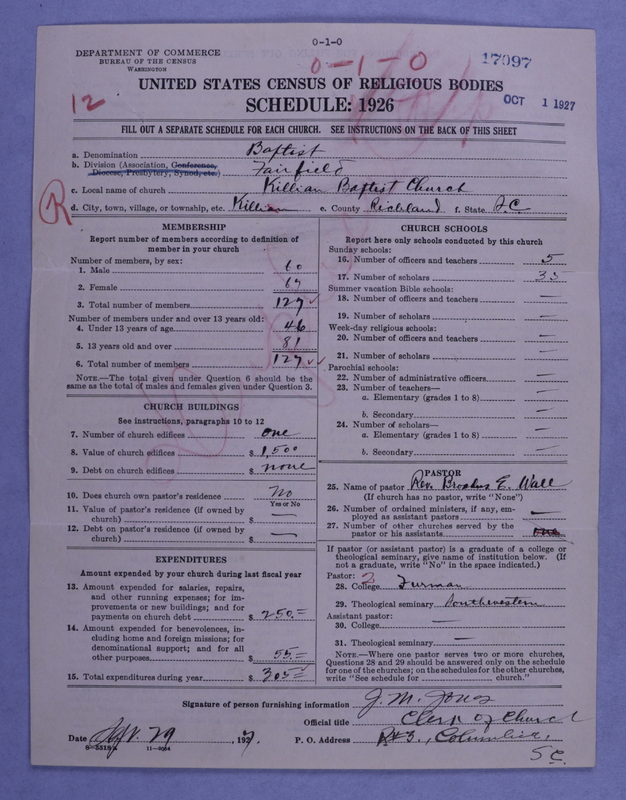 0-1-0
DEPARTMENT OF COMMERCE
BUREAU OF THE CENSUS
WASHINGTON
0-1-0
17097
UNITED STATES CENSUS OF RELIGIOUS BODIES
12
SCHEDULE: 1926
OCT 1 1927
FILL OUT A SEPARATE SCHEDULE FOR EACH CHURCH. SEE INSTRUCTIONS ON THE BACK OF THIS SHEET
a. Denomination Baptist
b. Division (Association, Conference, Diocese, Presbytery, Synod, etc.) Fairfield
c. Local name of church Killian Baptist Church
R
d. City, town, village, or township, etc. Killian e. County Richland f. State S.C.
MEMBERSHIP
Report number of members according to definition of
member in your church
Number of members, by sex:
1. Male 60
2. Female 67
3. Total number of members 127
Number of members under and over 13 years old:
4. Under 13 years of age 46
5. 13 years old and over 81
6. Total number of members 127
NOTE.—The total given under Question 6 should be the
same as the total of males and females given under Question 3.
CHURCH BUILDINGS
See instructions, paragraphs 10 to 12
7. Number of church edifices one
8. Value of church edifices $ 1,500
9. Debt on church edifices $ none
10. Does church own pastor's residence No
Yes or No
11. Value of pastor's residence (if owned by
church) $ —
12. Debt on pastor's residence (if owned by
church) $ —
EXPENDITURES
Amount expended by your church during last fiscal year
13. Amount expended for salaries, repairs,
and other running expenses; for im-
provements or new buildings; and for
payments on church debt $ 250.=
14. Amount expended for benevolences, in-
cluding home and foreign missions; for
denominational support; and for all
other purposes $ 55.=
15. Total expenditures during year $ 305.=
CHURCH SCHOOLS
Report here only schools conducted by this church
Sunday schools:
16. Number of officers and teachers 5
17. Number of scholars 35
Summer vacation Bible schools:
18. Number of officers and teachers —
19. Number of scholars —
Week-day religious schools:
20. Number of officers and teachers —
21. Number of scholars —
Parochial schools:
22. Number of administrative officers —
23. Number of teachers—
a. Elementary (grades 1 to 8) —
b. Secondary —
24. Number of scholars—
a. Elementary (grades 1 to 8) —
b. Secondary —
PASTOR
25. Name of pastor Rev. E. Wall
(If church has no pastor, write "None")
26. Number of ordained ministers, if any, em-
ployed as assistant pastors —
27. Number of other churches served by the
pastor or his assistants one
If pastor (or assistant pastor) is a graduate of a college or
theological seminary, give name of institution below. (If
not a graduate, write "No" in the space indicated.)
Pastor: 2
28. College Furman
29. Theological seminary Southwestern
Assistant pastor:
30. College —
31. Theological seminary —
NOTE.—Where one pastor serves two or more churches,
Questions 28 and 29 should be answered only on the schedule
for one of the churches; on the schedules for the other churches,
write "See schedule for church."
Signature of person furnishing information J. M. Jones
Official title Clerk of Church
Date Sept. 29, 1927. P. O. Address R#3., Columbia,
S.C.
8—5518a 11—9064